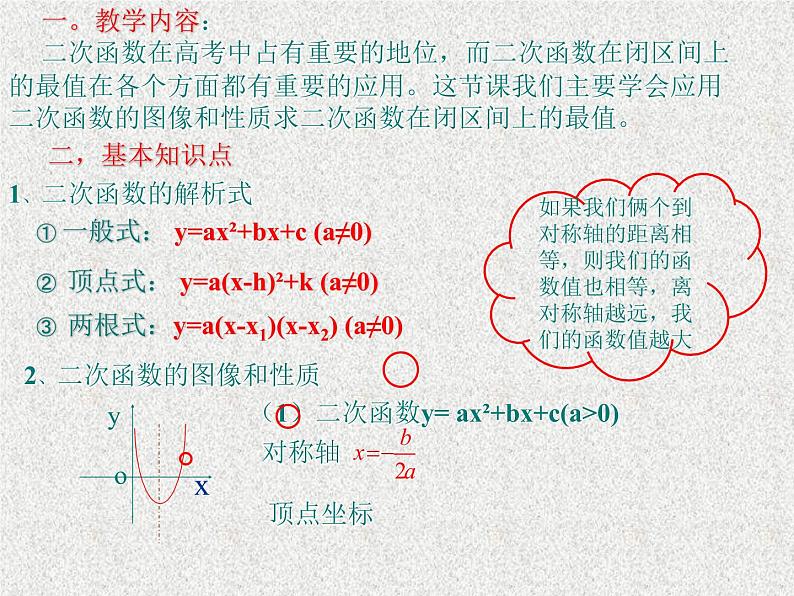 一。教学内容：
二次函数在高考中占有重要的地位，而二次函数在闭区间上
的最值在各个方面都有重要的应用。这节课我们主要学会应用
二次函数的图像和性质求二次函数在闭区间上的最值。
二，基本知识点
1、二次函数的解析式
① 一般式： y=ax²+bx+c (a≠0)
② 顶点式： y=a(x-h)²+k (a≠0)
③ 两根式：y=a(x-x₁)(x-x₂) (a≠0)
如果我们俩个到
对称轴的距离相
等，则我们的函
数值也相等，离
对称轴越远，我
们的函数值越大
2、二次函数的图像和性质
y
o
x
（1）二次函数y= ax²+bx+c(a>0)
对称轴 x=-b/2a
顶点坐标